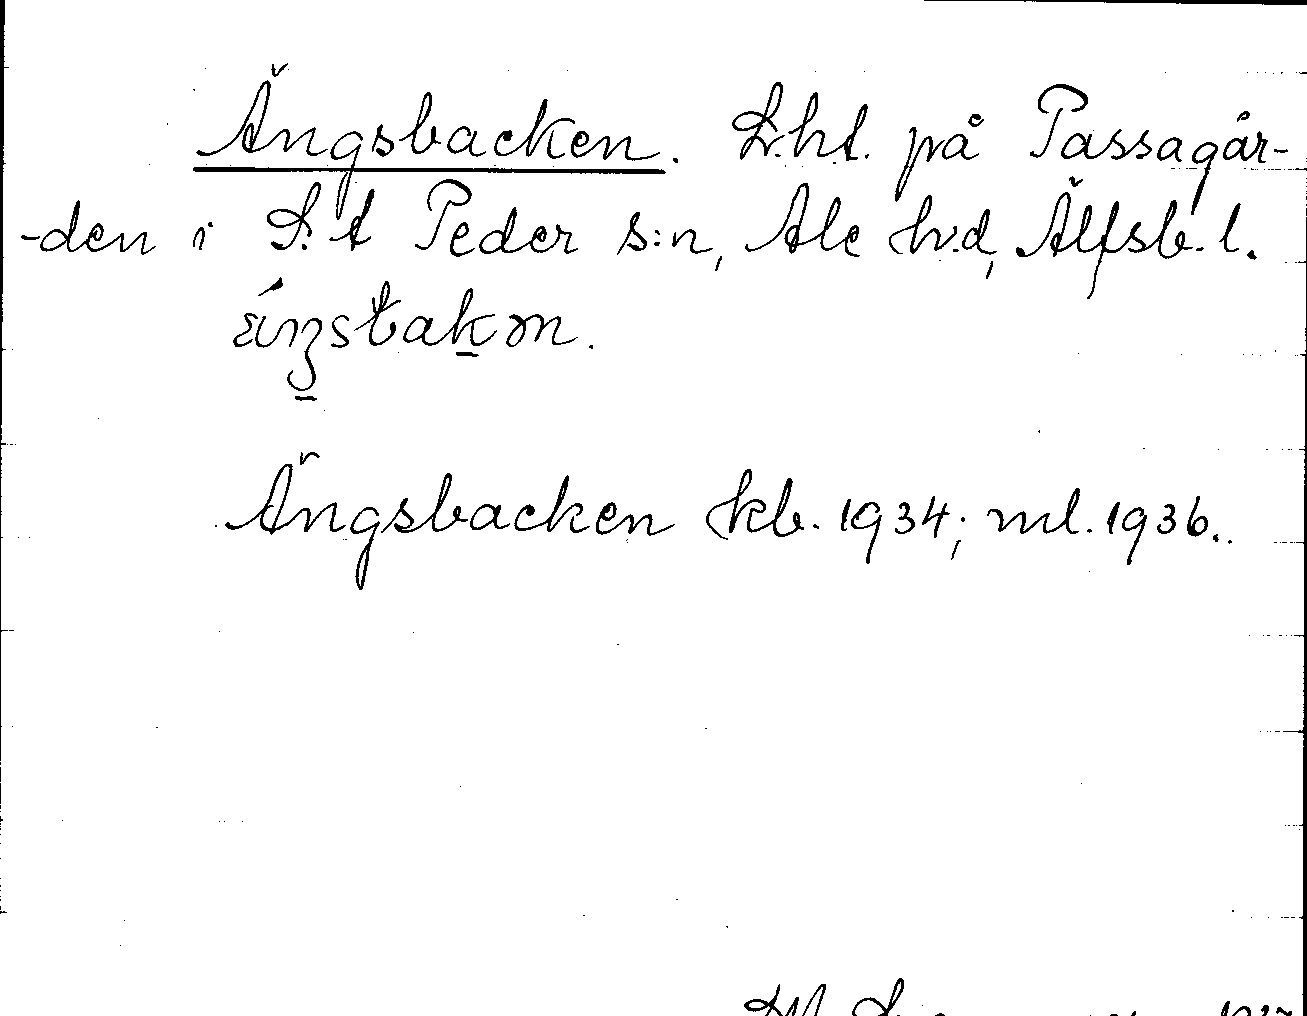 Ängsbacken. L.ht. på Passagår-
-den i S:t Peder s:n, Ale hd, Älfsb. l.
Ängsbacken kb. 1934; ml. 1936.